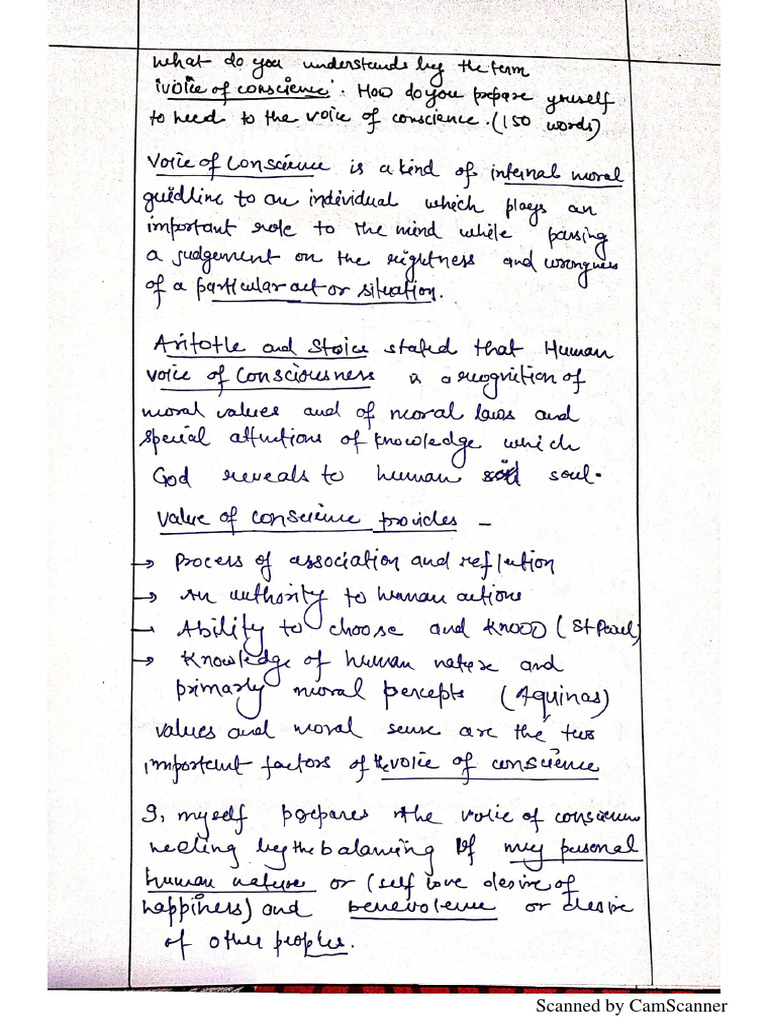 What do you understands by the term
'voice of conscience'. How do you prepare yourself
to heed to the voice of conscience. (150 words)
Voice of Conscience is a kind of internal moral
guidline to an individual which plays an
important role to the mind while passing
a judgement on the rightness and wrongness
of a particular act or situation.
Aristotle and Stoics stated that Human
voice of Consciousness is a recognition of
moral values and of moral laws and
special affections of knowledge which
God reveals to human soul.
Value of conscience provides -
→ Process of association and reflection
→ An authority to human actions
- Ability to choose and know (St Paul)
→ Knowledge of human nature and
primarly moral percepts (Aquinas)
values and moral sense are the two
important factors of the voice of conscience
I, myself prepares the voice of conscience
heeling by the balancing of my personal
human nature or (self love desire of
happiness) and benevolence or desire
of other peoples.
Scanned by CamScanner